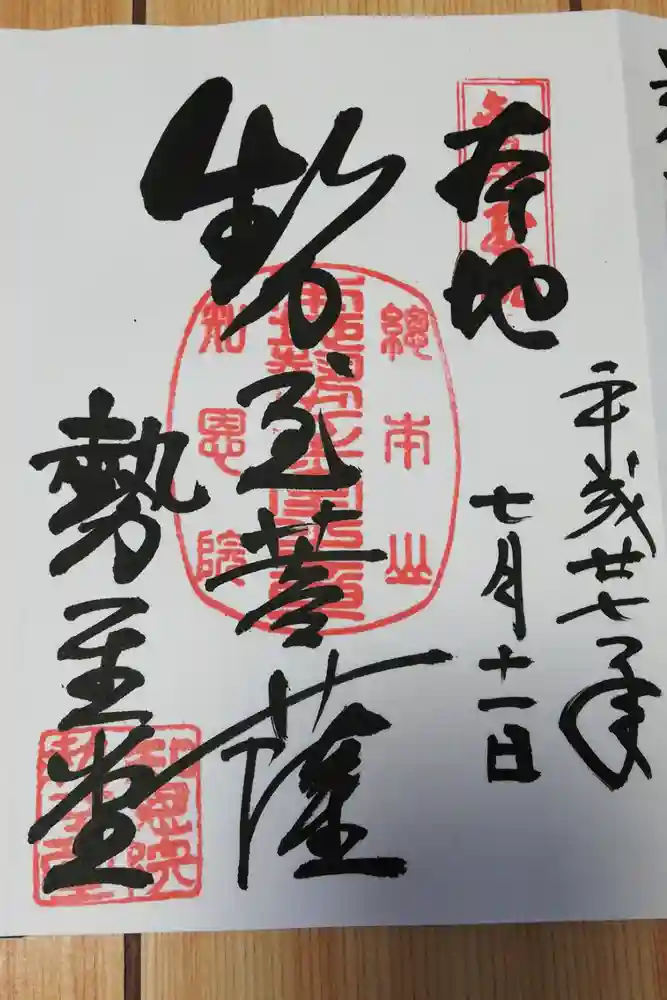 平成廿七年
七月十一日
本地
勢至菩薩
總本山
知恩院
勢至堂
知恩院
勢至堂